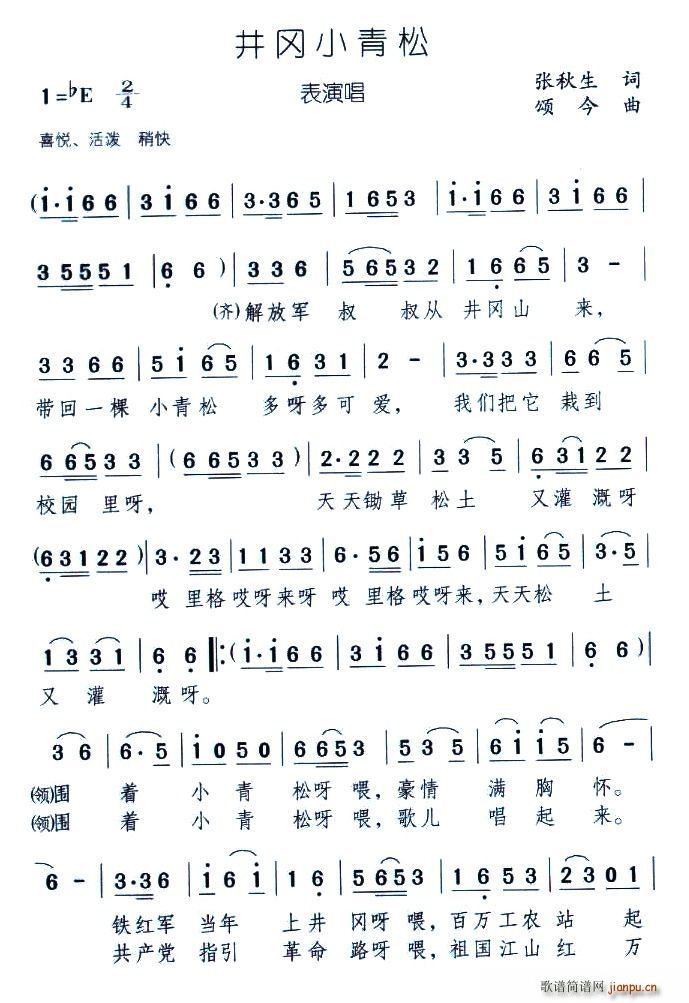 井冈小青松
1=♭E 2/4 表演唱 张秋生 词
颂 今 曲
喜悦、活泼 稍快
(i·i66 | 3i66 | 3·365 | 1653 | i·i66 | 3i66 |
35551 | 66) | 336 | 56532 | 1665 | 3 - |
(齐)解放军 叔 叔从 井冈山 来,
3366 | 5i65 | 1631 | 2 - | 3·333 | 665 |
带回一棵 小青松 多呀多可 爱, 我们把它 栽到
66533 | (66533) | 2·222 | 335 | 63122 |
校园 里呀, 天天锄草 松土 又灌 溉呀
(63122) | 3·23 | 1133 | 6·56 | i56 | 5i65 | 3·5 |
哎 里格哎呀来呀 哎 里格哎呀来,天天松 土
1331 | 66 ‖: (i·i66 | 3i66 | 35551 | 66) |
又 灌 溉呀。
36 | 6·5 | i050 | 6653 | 535 | 6ii5 | 6 - |
(领)围 着 小 青 松呀 喂,豪情 满 胸 怀。
(领)围 着 小 青 松呀 喂,歌儿 唱 起 来。
6 - | 3·36 | i6i | 16 | 5653 | 1653 | 2301 |
铁红军 当年 上井 冈呀 喂,百万工农 站 起
共产党 指引 革命 路呀 喂,祖国江山 红 万
歌谱简谱网 jianpu.cn